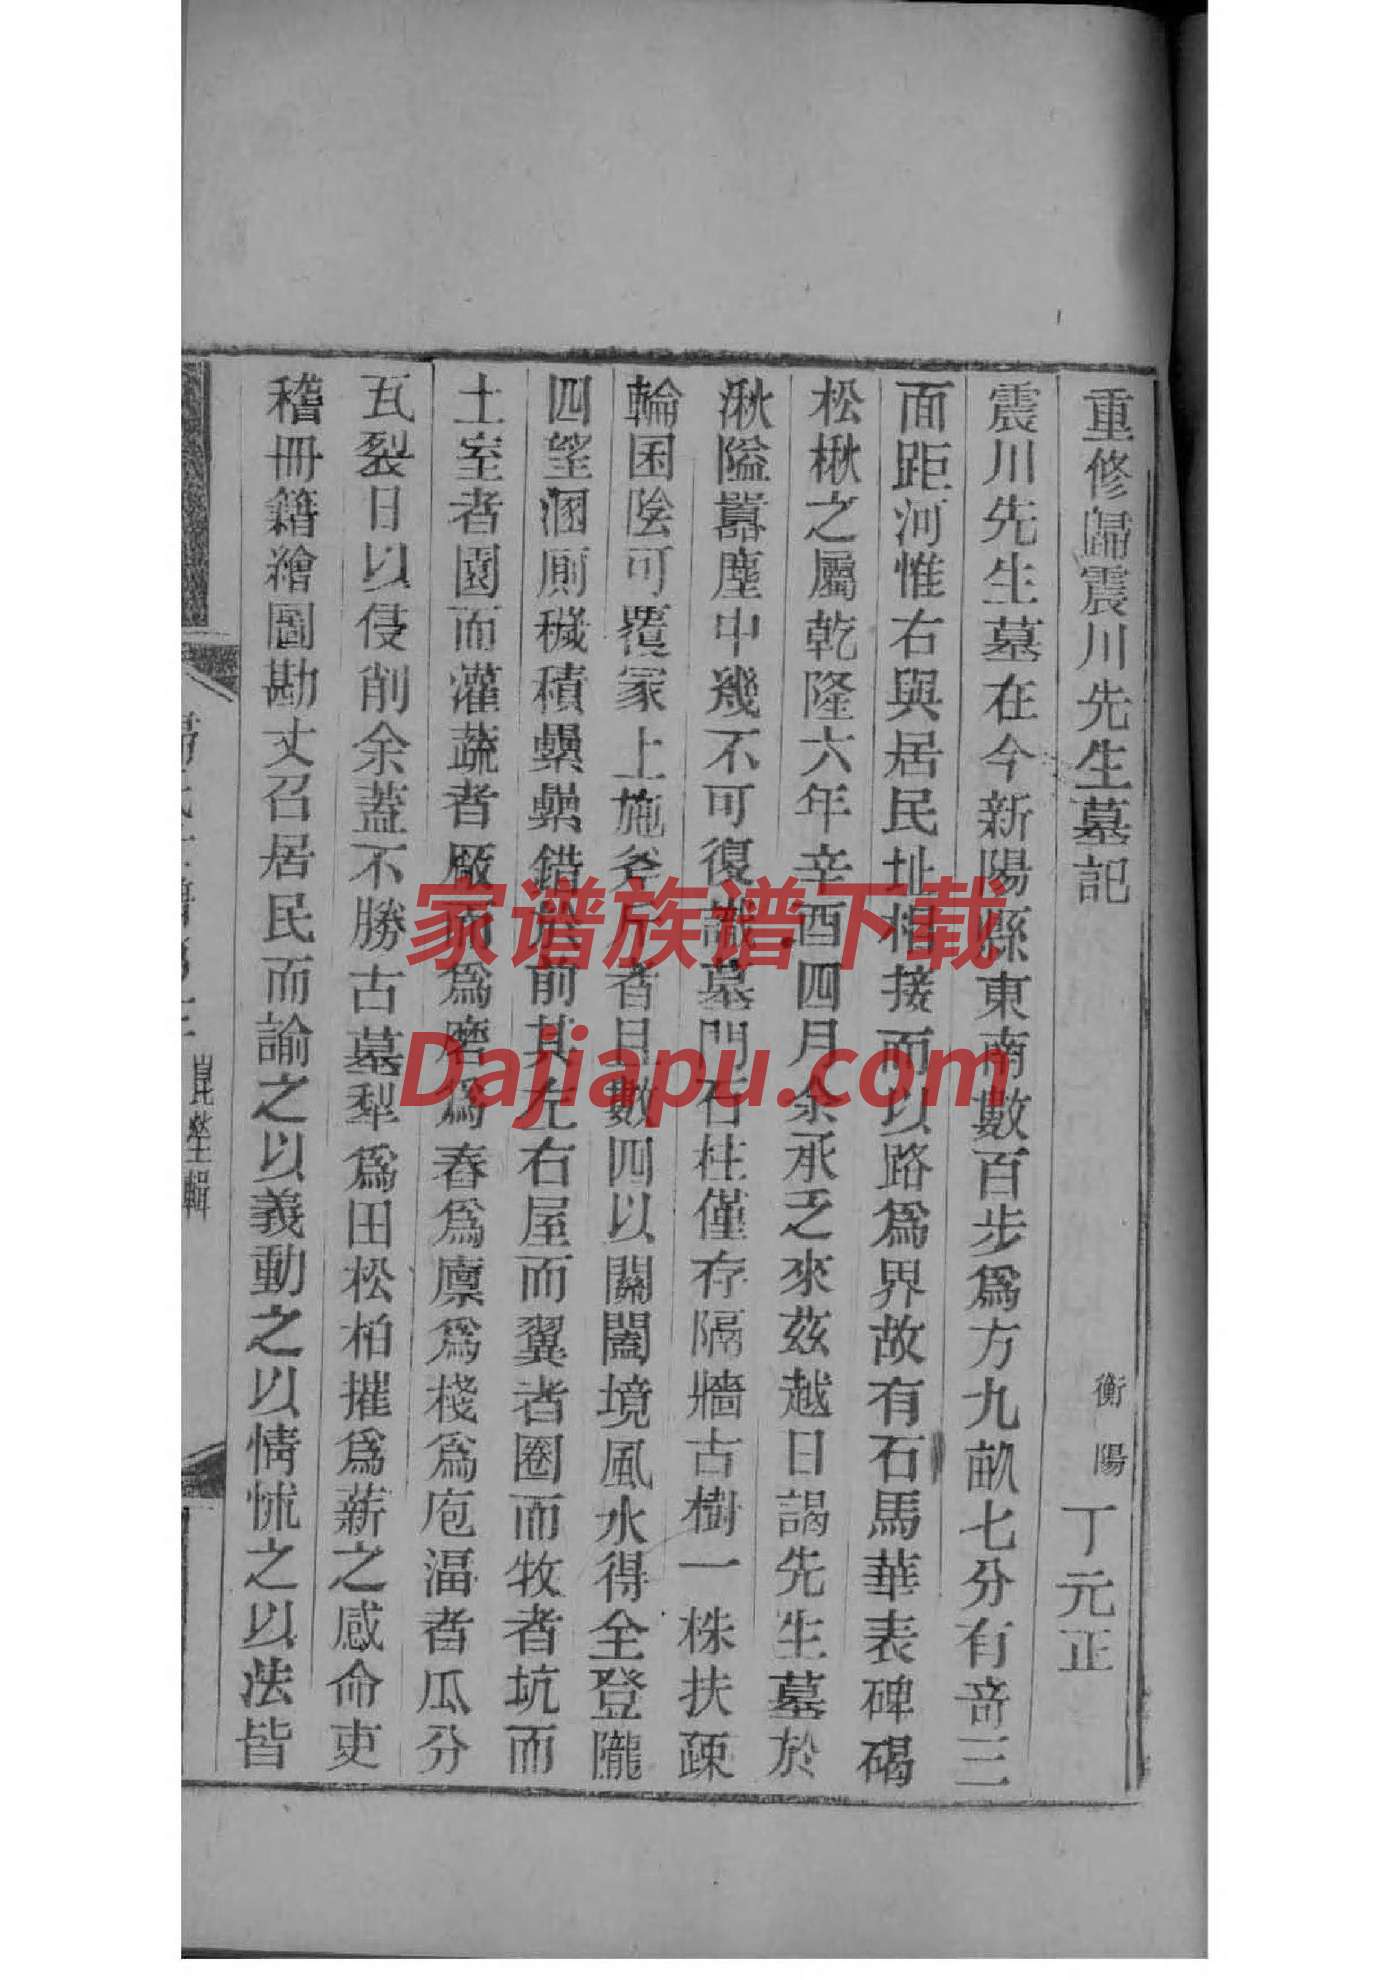 重修歸震川先生墓記
衡陽 丁元正
震川先生墓在今新陽縣東南數百步爲方九畝七分有奇三
面距河惟右與居民址相接而以路爲界故有石馬華表碑碣
松楸之屬乾隆六年辛酉四月余承乏來茲越日謁先生墓於
湫隘囂塵中幾不可復識墓門石柱僅存隔牆古樹一株扶疎
輪囷陰可覆冢上施斧斤者且數四以關闔境風水得全登隴
四望溷厠穢積纍纍錯於前其左右屋而翼者圈而牧者坑而
土室者園而灌蔬者廠而爲磨爲舂爲廩爲棧爲庖湢者瓜分
瓦裂日以侵削余蓋不勝古墓犁爲田松柏摧爲薪之感命吏
稽冊籍繪圖勘丈召居民而諭之以義動之以情怵之以法皆
崑瑩輯
家谱族谱下载
Dajiapu.com